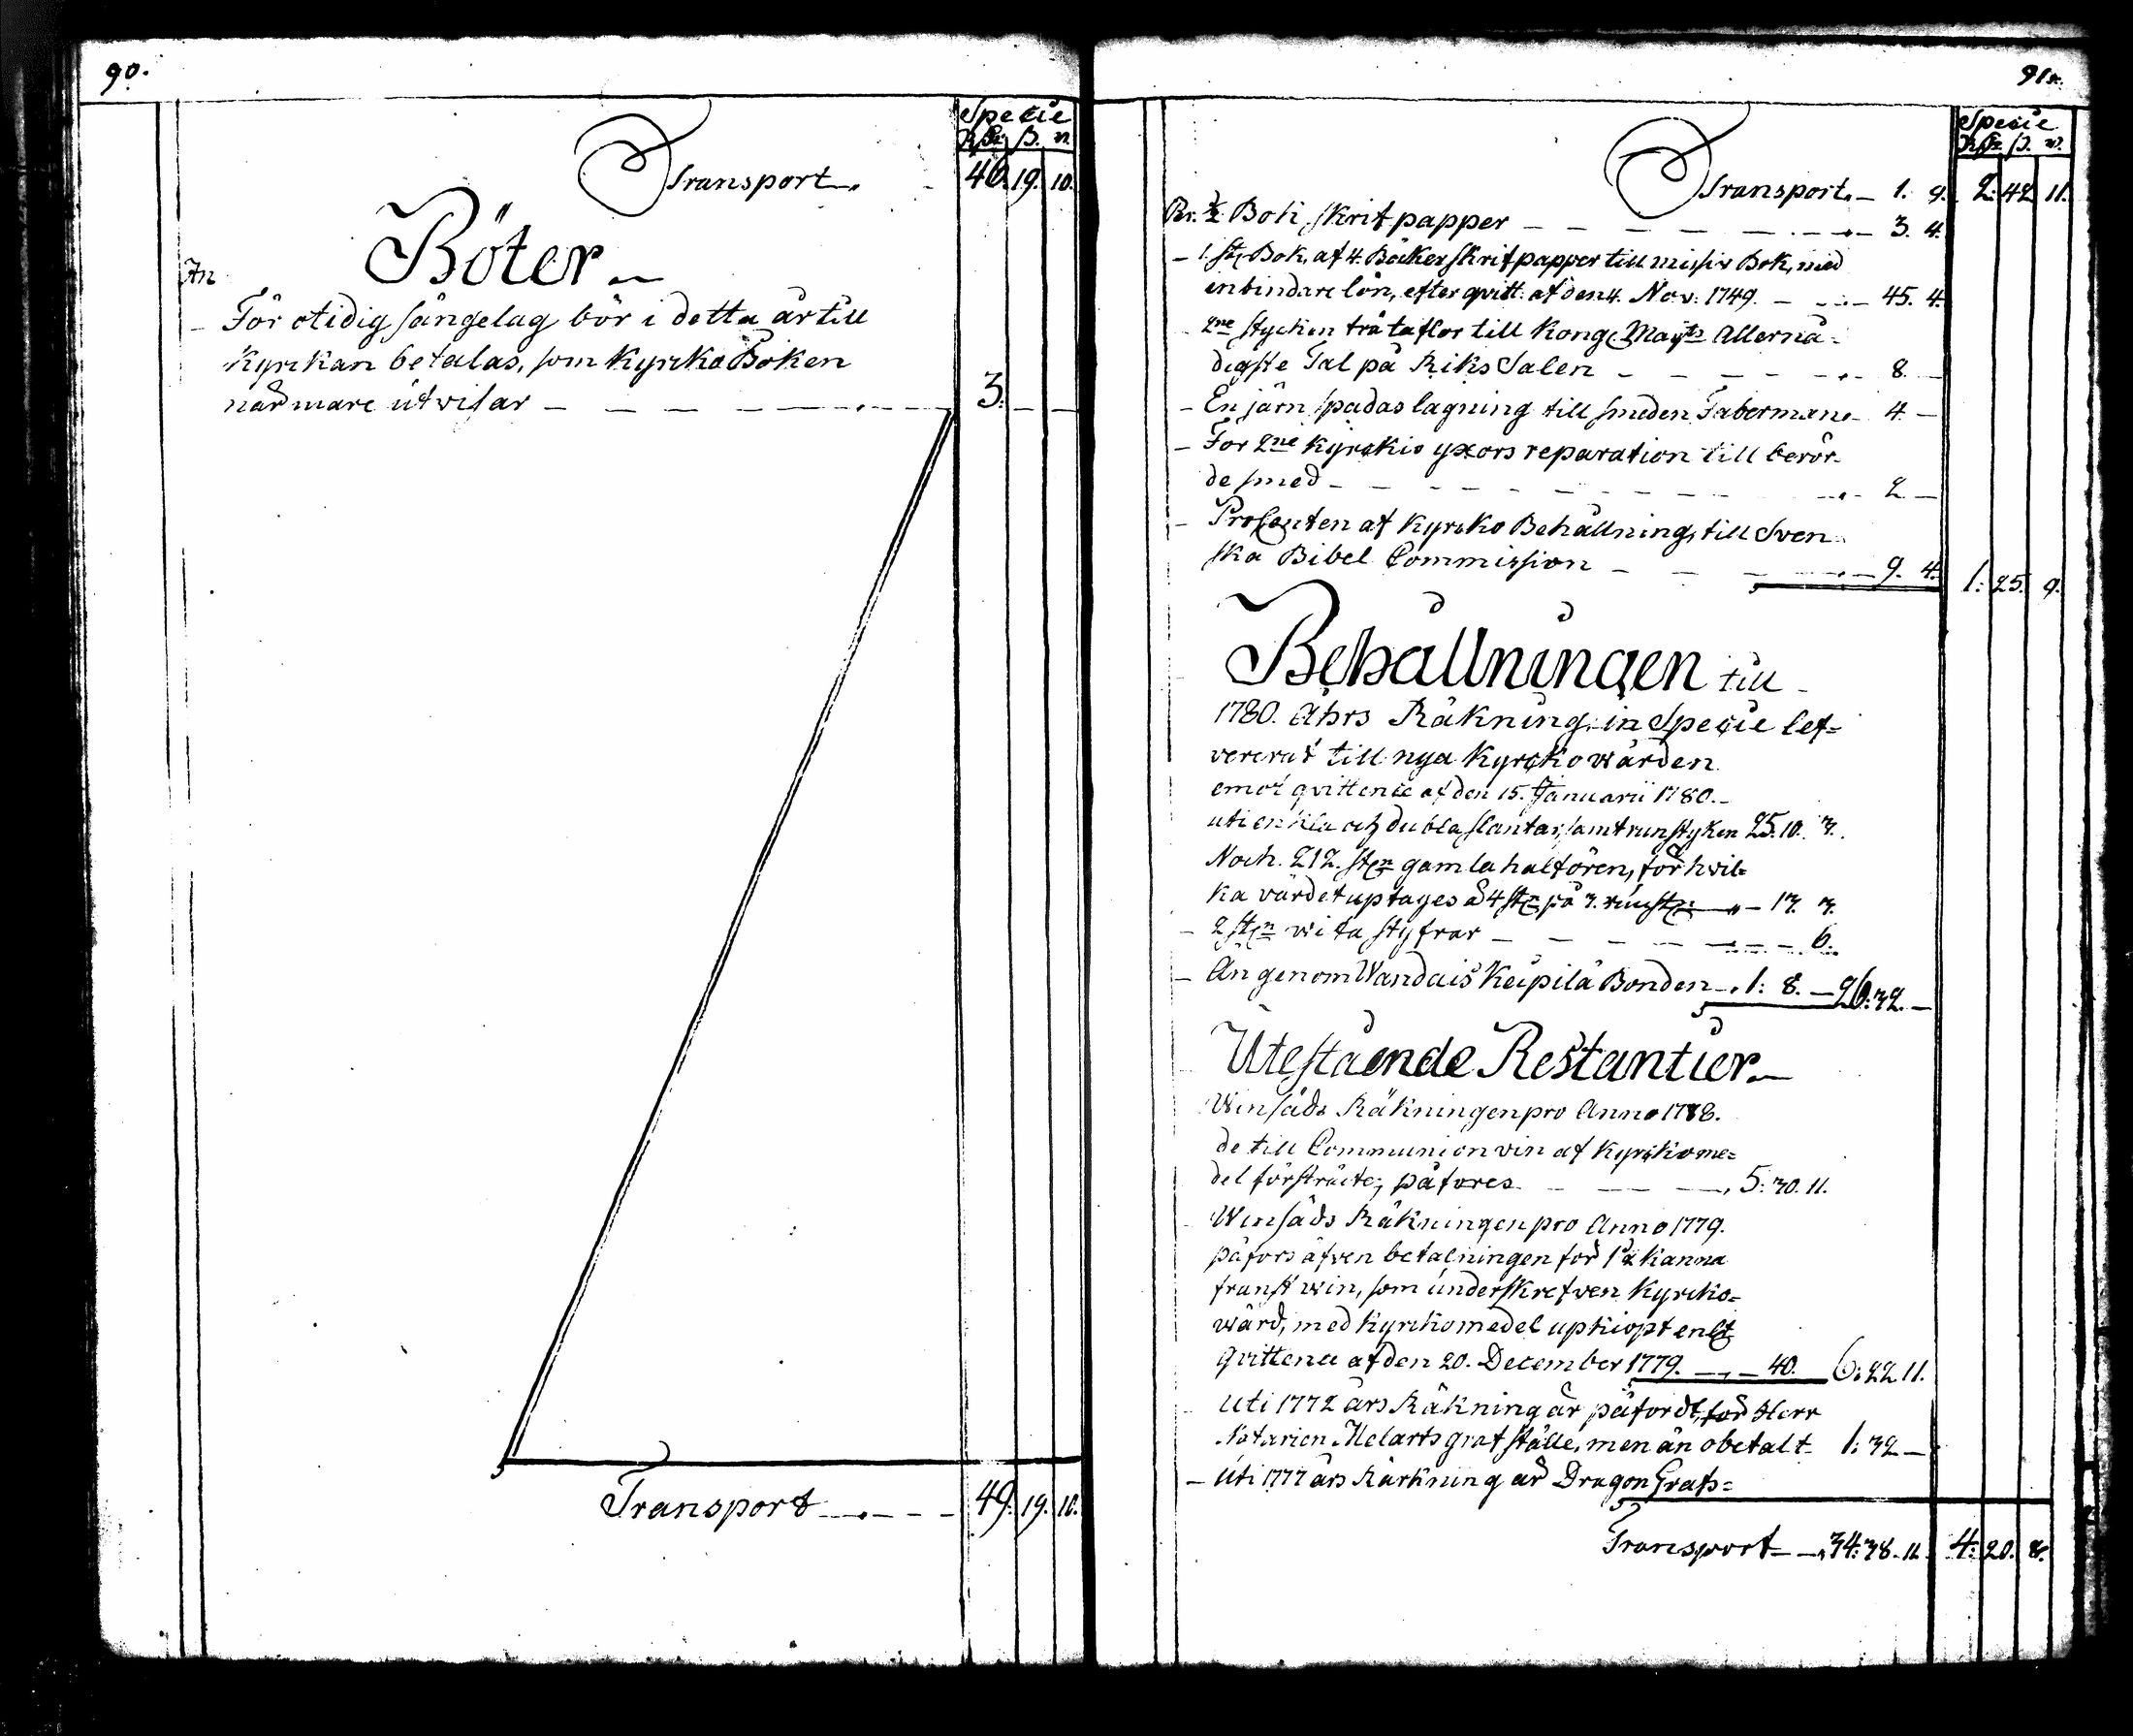 90.
Specie
Rdr. ß. rs.
Transport. - 46. 19. 10.
Böter
In
För otidig sängelag bör i detta år till
kyrckan betalas, som kyrcko Boken
närmare utvisar - - - 3. - -
Transport - - - 49. 19. 10.
91.
Specie
Rdr. ß. rs.
Transport. - 1. 9. 2: 42. 11.
Pr. ½ Bok skrifpapper - - - 3. 4.
- 1. st. Bok, af 4 Böcker skrifpapper till missiv Bok, med
inbindare lön, efter qvitt: af den 4. Nov: 1749. - - 45. 4.
- 2ne stycken trätaflor till Kongl. Mayts Allernå-
digste Tal på Riks Salen - - - 8. -
- En järn spadas lagning till smeden Faberman - 4. -
- För 2ne kyrckio yxors reparation till berör-
de smed - - - 2. -
- Procenten af kyrcko Behållning, till Sven-
ska Bibel Commission - - - 9. 4. 1: 25. 9.
Behållningen till
1780. Åhrs Räkning, in Specie lef-
vererat till nya kyrckowärden
emot qvittence af den 15. Januarii 1780. -
uti enkla och dubla slantar, samt runstyken 25. 10. 3.
Noch. 212. stn gamla halfören, för hvil-
ka värdet uptages à 4 st. på 3. runst. - 13. 3.
- 2 stn wita styfrar - - - 6.
- Än genom Wandais Keipilä Bonden - 1: 8. - 26: 32. -
Utestående Restantier.
Winsäds Räkningen pro Anno 1778.
de till Communion vin af kyrckome-
del försträckte, påföres - - - 5: 30. 11.
- Winsäds Räkningen pro Anno 1779.
påförs äfven betalningen för 1 ½ kanna
franst win, som underskrefven kyrcko-
wärd, med kyrckomedel upkiöpt enlt
qvittence af den 20. December 1779. - - 40. 6: 22 11.
- Uti 1772 års Räkning är påfördt, för Herr
Notarien Melarts graf ställe, men än obetalt - 1: 32 -
- Uti 1777 års Räkning är Dragon Grafs-
Transport - 34: 38. 11. 4: 20. 8.